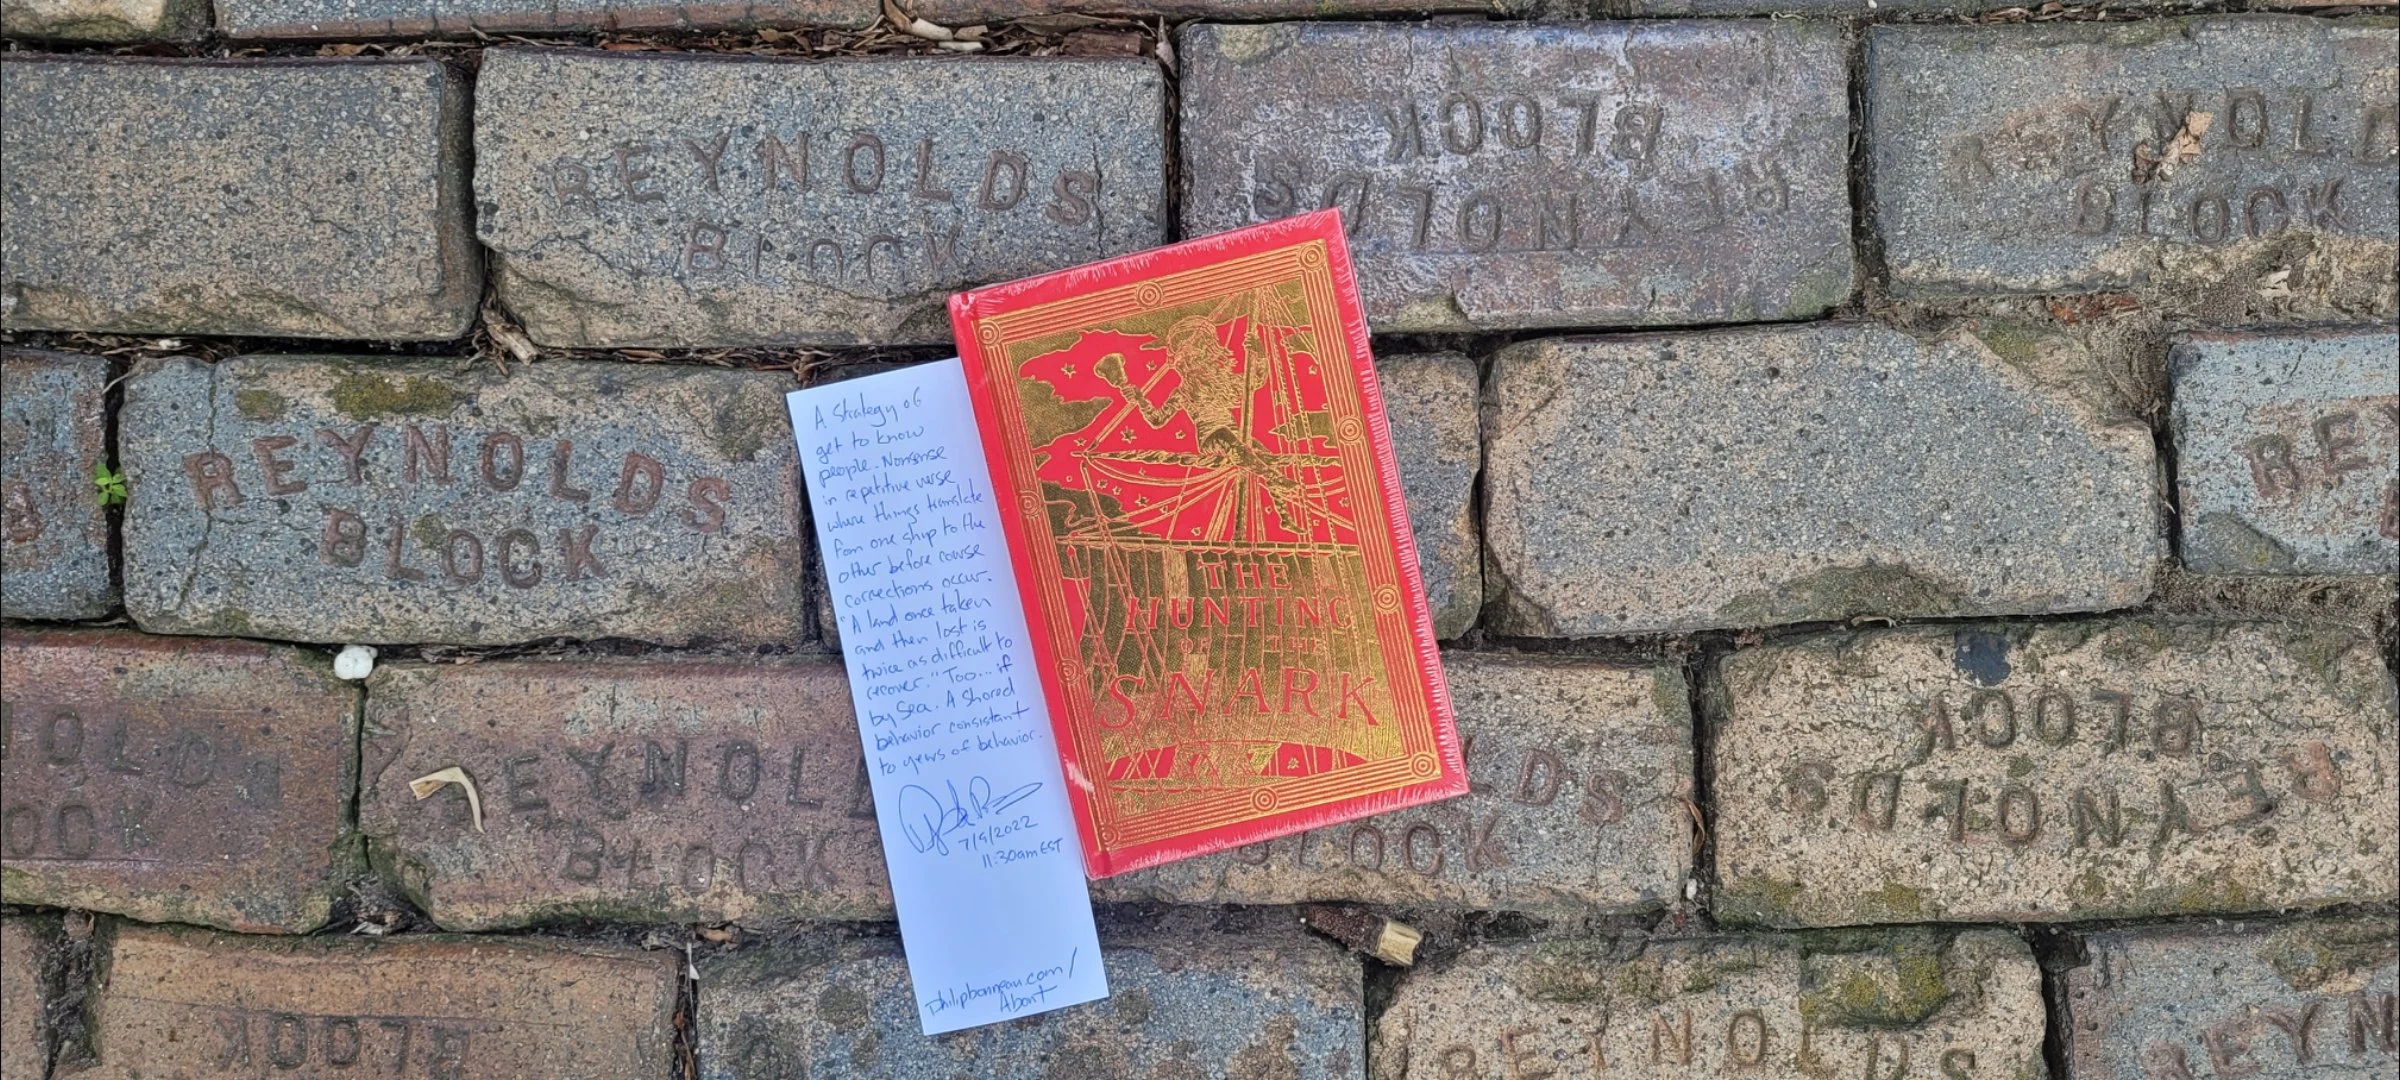 REYNOLDS
BLOCK
REYNOLDS
BLOCK
REYNOLD
BLOCK
REYNOLDS
BLOCK
REY
A Strategy of
get to know
people. Nonsense
in repetitive verse
where things translate
from one ship to the
other before course
corrections occur.
"A land once taken
and then lost is
twice as difficult to
recover." Too... if
by Sea. A Shared
behavior consistant
to years of behavior.
7/9/2022
11:30am EST
philipbonneau.com/
About
THE
HUNTING
OF THE
SNARK
OLD
OCK
REYNOL
BLOCK
LDS
BLOCK
REYNOLDS
BLOCK
BLOCK
REYNOLDS
REYN